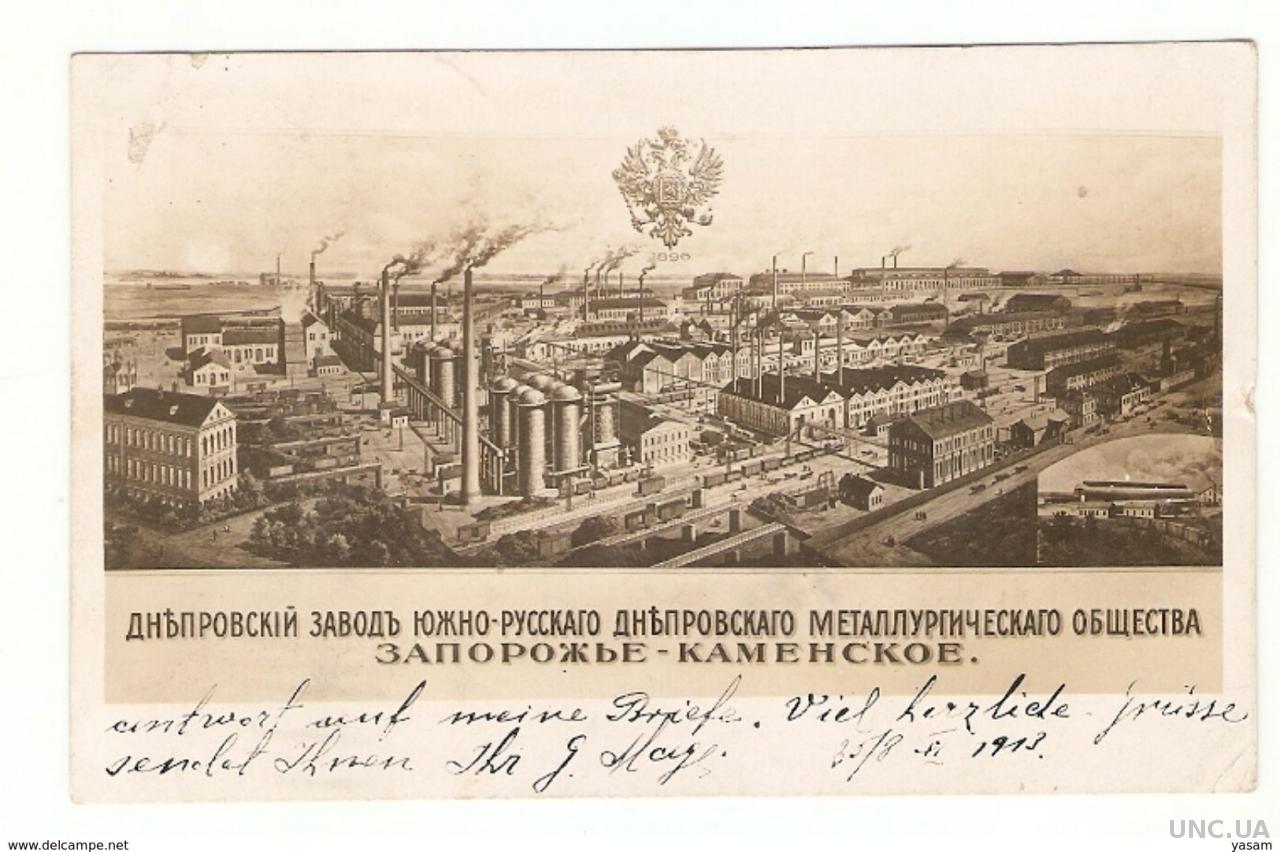 1896
ДНѢПРОВСКІЙ ЗАВОДЪ ЮЖНО-РУССКАГО ДНѢПРОВСКАГО МЕТАЛЛУРГИЧЕСКАГО ОБЩЕСТВА
ЗАПОРОЖЬЕ-КАМЕНСКОЕ.
antwort auf meine Briefe. Viel herzliche Grüsse
sendet Ihnen Ihr G. 1913.
UNC.UA
www.delcampe.net
yasam